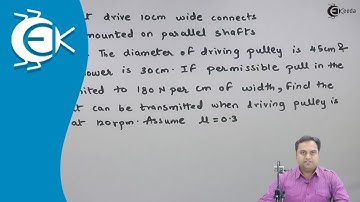 Ekeeda
t drive 10cm wide connects
mounted on parallel shafts
The diameter of driving pulley is 45cm &
ower is 30cm. If permissible pull in the
ited to 180 N per cm of width, find the
t can be transmitted when driving pulley is
at 120 rpm. Assume μ = 0.3